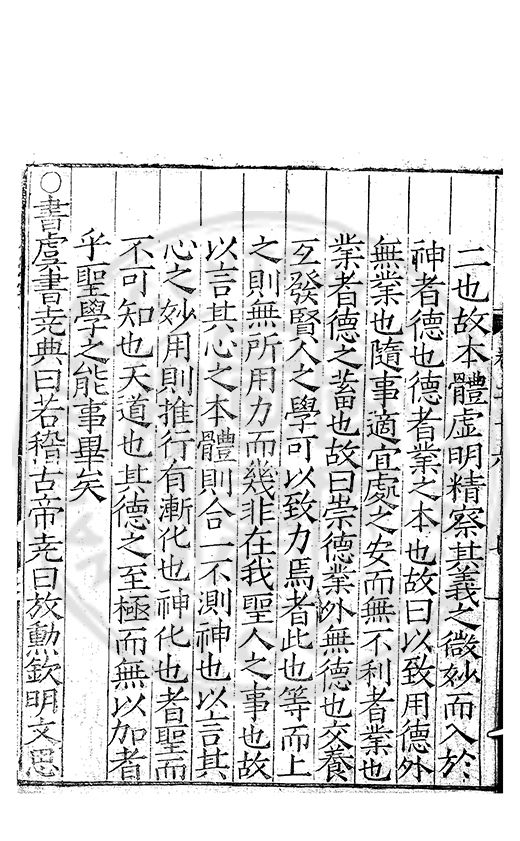 二也故本體虛明精察其義之微妙而入於
神者德也德者業之本也故曰以致用德外
無業也隨事適宜處之安而無不利者業也
業者德之蓄也故曰崇德業外無德也交養
互發賢人之學可以致力焉者此也等而上
之則無所用力而幾非在我聖人之事也故
以言其心之本體則合一不測神也以言其
心之妙用則推行有漸化也神化也者聖而
不可知也天道也其德之至極而無以加者
乎聖學之能事畢矣
○書虞書堯典曰若稽古帝堯曰放勳欽明文思